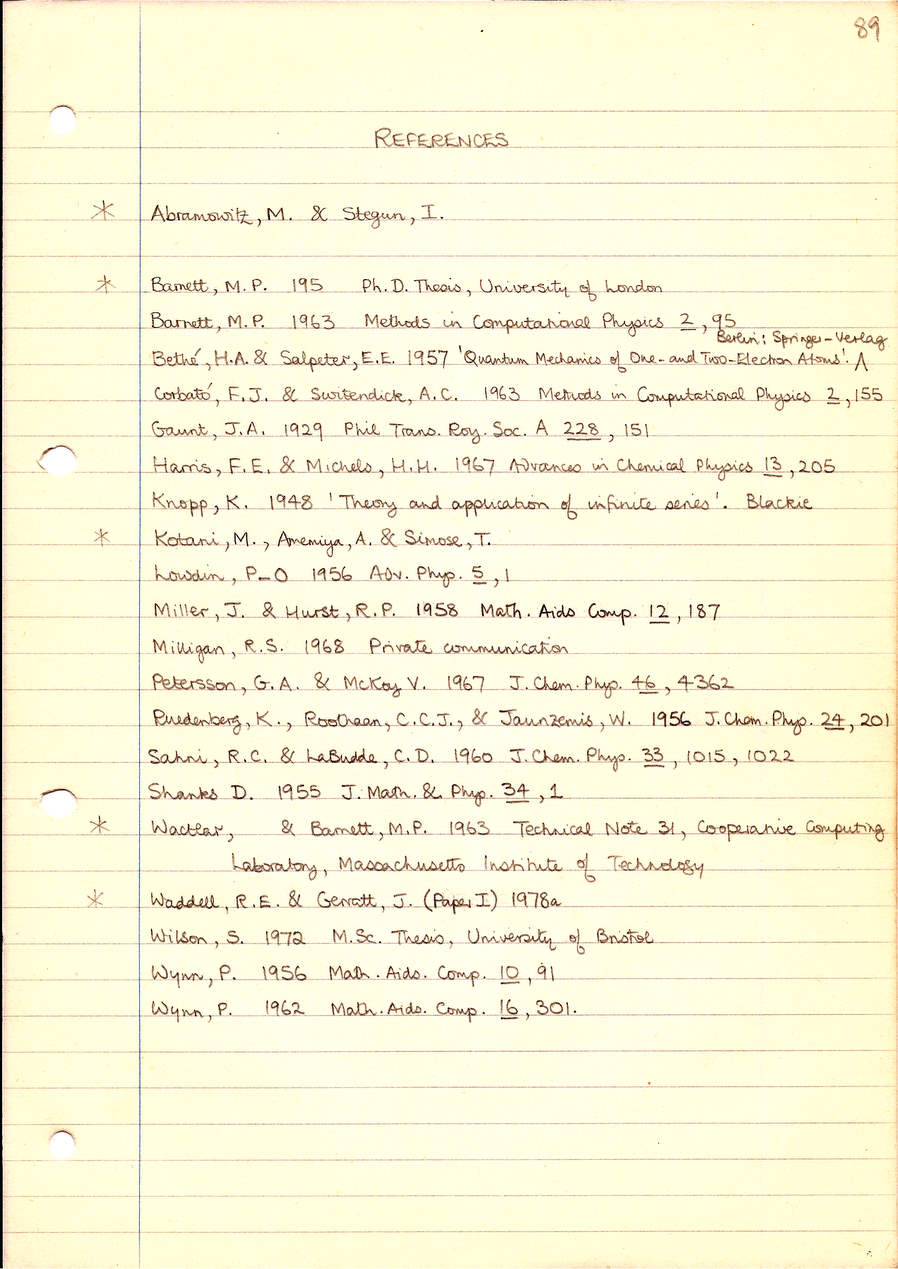 89
REFERENCES
* Abramowitz, M. & Stegun, I.
* Barnett, M.P. 195 Ph.D. Thesis, University of London
Barnett, M.P. 1963 Methods in Computational Physics 2, 95
Berlin: Springer-Verlag
Bethé, H.A. & Salpeter, E.E. 1957 'Quantum Mechanics of One- and Two-Electron Atoms'. ⋀
Corbató, F.J. & Switendick, A.C. 1963 Methods in Computational Physics 2, 155
Gaunt, J.A. 1929 Phil Trans. Roy. Soc. A 228, 151
Harris, F.E. & Michels, H.H. 1967 Advances in Chemical Physics 13, 205
Knopp, K. 1948 'Theory and application of infinite series'. Blackie
* Kotani, M., Amemiya, A. & Simose, T.
Lowdin, P-O 1956 Adv. Phys. 5, 1
Miller, J. & Hurst, R.P. 1958 Math. Aids Comp. 12, 187
Milligan, R.S. 1968 Private communication
Petersson, G.A. & McKoy V. 1967 J. Chem. Phys. 46, 4362
Ruedenberg, K., Roothaan, C.C.J., & Jaunzemis, W. 1956 J. Chem. Phys. 24, 201
Sahni, R.C. & LaBudde, C.D. 1960 J. Chem. Phys. 33, 1015, 1022
Shanks D. 1955 J. Math. & Phys. 34, 1
* Wactlar, & Barnett, M.P. 1963 Technical Note 31, Cooperative Computing
Laboratory, Massachusetts Institute of Technology
* Waddell, R.E. & Gerratt, J. (Paper I) 1978a
Wilson, S. 1972 M.Sc. Thesis, University of Bristol
Wynn, P. 1956 Math. Aids. Comp. 10, 91
Wynn, P. 1962 Math. Aids. Comp. 16, 301.